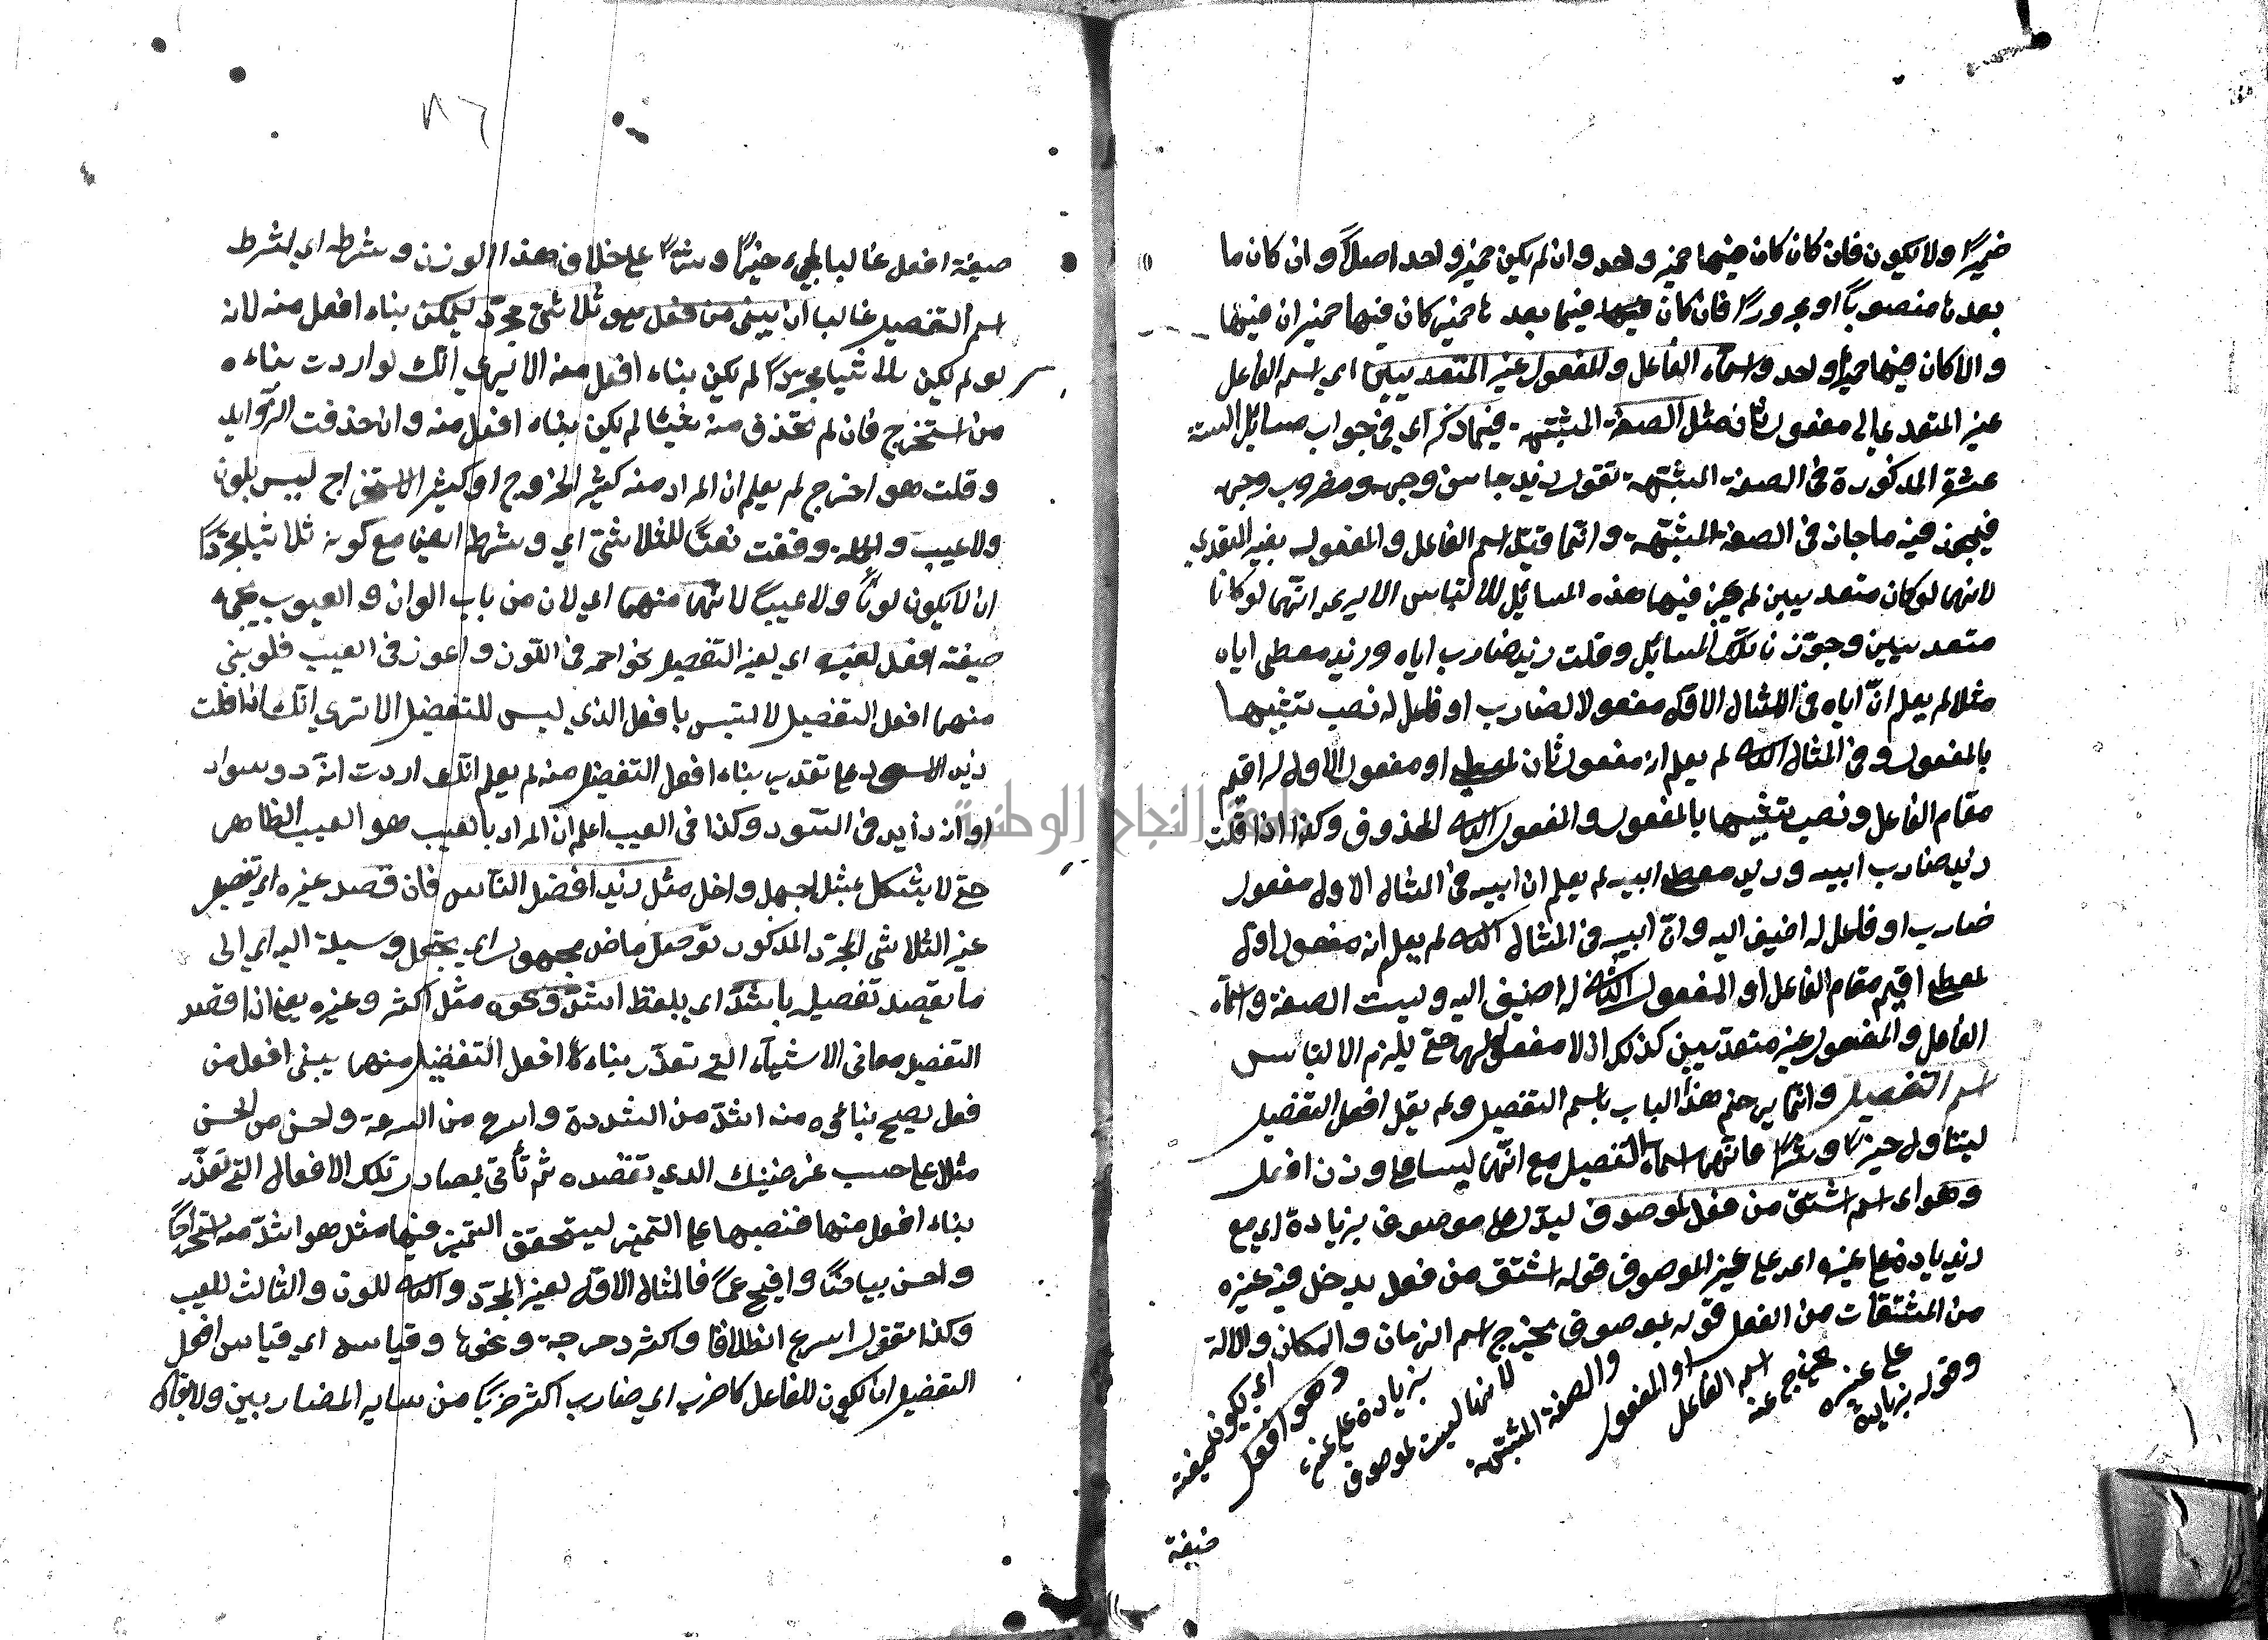 ضميرًا ولا يكون فان كان كان فيها ضمير واحد وان لم يكن ضمير واحد اصلاً وان كان ما
بعدها منصوبًا او مجرورًا فان كان فيها فيما بعدها ضمير كان فيها ضميران فيها
والا كان فيها ضمير واحد واسماء الفاعل والمفعول غير المتعديين اي اسم الفاعل
غير المتعدي الى مفعول ثان مثل الصفة المشبهة فيما ذكر اي في جواب مسائل الستة
عشرة المذكورة في الصفة المشبهة تقول زيد حاسن وجهه ومضروب وجهه
فيجوز فيه ما جاز في الصفة المشبهة وانما قيّد اسم الفاعل والمفعول بغير التعدي
لانهما لو كان متعديين لم يجز فيها هذه المسائل للالتباس الا يرى انهما لو كانا
متعديين وجوزنا تلك المسائل وقلت زيد ضارب اياه وزيد معطى اياه
مثلا لم يعلم انّ اياه في المثال الاول مفعولا لضارب او فاعل له نصب تشبيها
بالمفعول وفي المثال الثاني لم يعلم انه مفعول ثان لمعطى او مفعول الاول له اقيم
مقام الفاعل ونصب تشبيها بالمفعول والمفعول الثاني المحذوف وكذا اذا قلت
زيد ضارب ابيه وزيد معطى ابيه لم يعلم ان ابيه في المثال الاول مفعول
ضارب او فاعل له اضيف اليه وانّ ابيه في المثال الثاني لم يعلم انه مفعول اول
لمعطى اقيم مقام الفاعل او المفعول الثاني له اضيف اليه وليست الصفة واسماء
الفاعل والمفعول غير متعديين كذلك اذ لا مفعول لها حتى يلزم الالتباس
اسم التفضيل وانما ترجم هذا الباب باسم التفضيل ولم يقل افعل التفضيل
ليتناول خيرًا وشرًا فانهما اسماء التفضيل مع انهما ليسا على وزن افعل
وهو اي اسم اشتق من فعل لموصوف ليدل على موصوف بزيادة اي مع
زيادة على غيره اي على غير الموصوف قوله اشتق من فعل يدخل فيه غيره
من المشتقات من الفعل قوله لموصوف يخرج اسم الزمان والمكان والالة
وقوله بزيادة
على غيره
يخرج عنه
اسم الفاعل
او المفعول
والصفة المشبهة
لانها ليست لموصوف
بزيادة على غيره
وهو افعل
اي يكون صيغة
صيغة
٨٦
صيغة افعل غالبا لمجيء خيرًا وشرًا على خلاف هذا الوزن وشرطه اي لشرط
اسم التفضيل غالبا ان يبنى من فعل هو ثلاثي مجرّد ليمكن بناء افعل منه لانه
لو لم يكن ثلاثيا مجرّدًا لم يكن بناء افعل منه الا يرى انك لو اردت بناءه
من استخرج فان لم تحذف منه شيئا لم يكن بناء افعل منه وان حذفت الزّوايد
وقلت هو اخرج لم يعلم ان المراد منه كثير الخروج او كثير الاستخراج ليس بلون
ولا عيب والجملة وقعت نعتًا للثلاثي اي وشرطه ايضا مع كونه ثلاثيا مجرّدًا
ان لا يكون لونًا ولا عيبًا لانهما منهما اي لان من باب الوان والعيوب يجيء
صيغة افعل لغيره اي لغير التفضيل نحو احمر في اللون واعور في العيب فلو بني
منهما افعل التفضيل لالتبس بافعل الذي ليس للتفضيل الا ترى انك اذا قلت
زيد الاسود على تقدير بناء افعل التفضيل منه لم يعلم انك اردت انه ذو سواد
او انه زايد في السّود وكذا في العيب اعلم ان المراد بالعيب هو العيب الظاهر
حتى لا يشكل بمثل اجهل وابخل مثل زيد افضل الناس فان قصد غيره اي تفضيل
غير الثلاثي المجرّد المذكور توصل ماض مجهول اي يجعل وسيلة اليه اي الى
ما يقصد تفضيله باشدّ اي بلفظ اشدّ ونحوه مثل اكثر وغيره يعني اذا قصد
التفضيل معاني الاشياء التي تعذّر بناء افعل التفضيل منها يبنى افعل من
فعل يصح بناءه منه اشدّ من الشددة واسرع من السرعة واحسن من الحسن
مثلا على حسب غرضك الذي تقصده ثم تأتي بمصادر تلك الافعال التي تعذّر
بناء افعل منها فنصبها على التمييز ليتحقق التمييز فيها مثل هو اشدّ منه استخراجًا
واحسن بياضًا واقبح عمًى فالمثال الاول لغير المجرّد والثاني للون والثالث للعيب
وكذا تقول اسرع انطلاقا واكثر دحرجة ونحوها وقياسه اي قياس افعل
التفضيل ان يكون للفاعل كاضرب اي ضارب اكثر ضربًا من ساير المضاربين ولا يقال